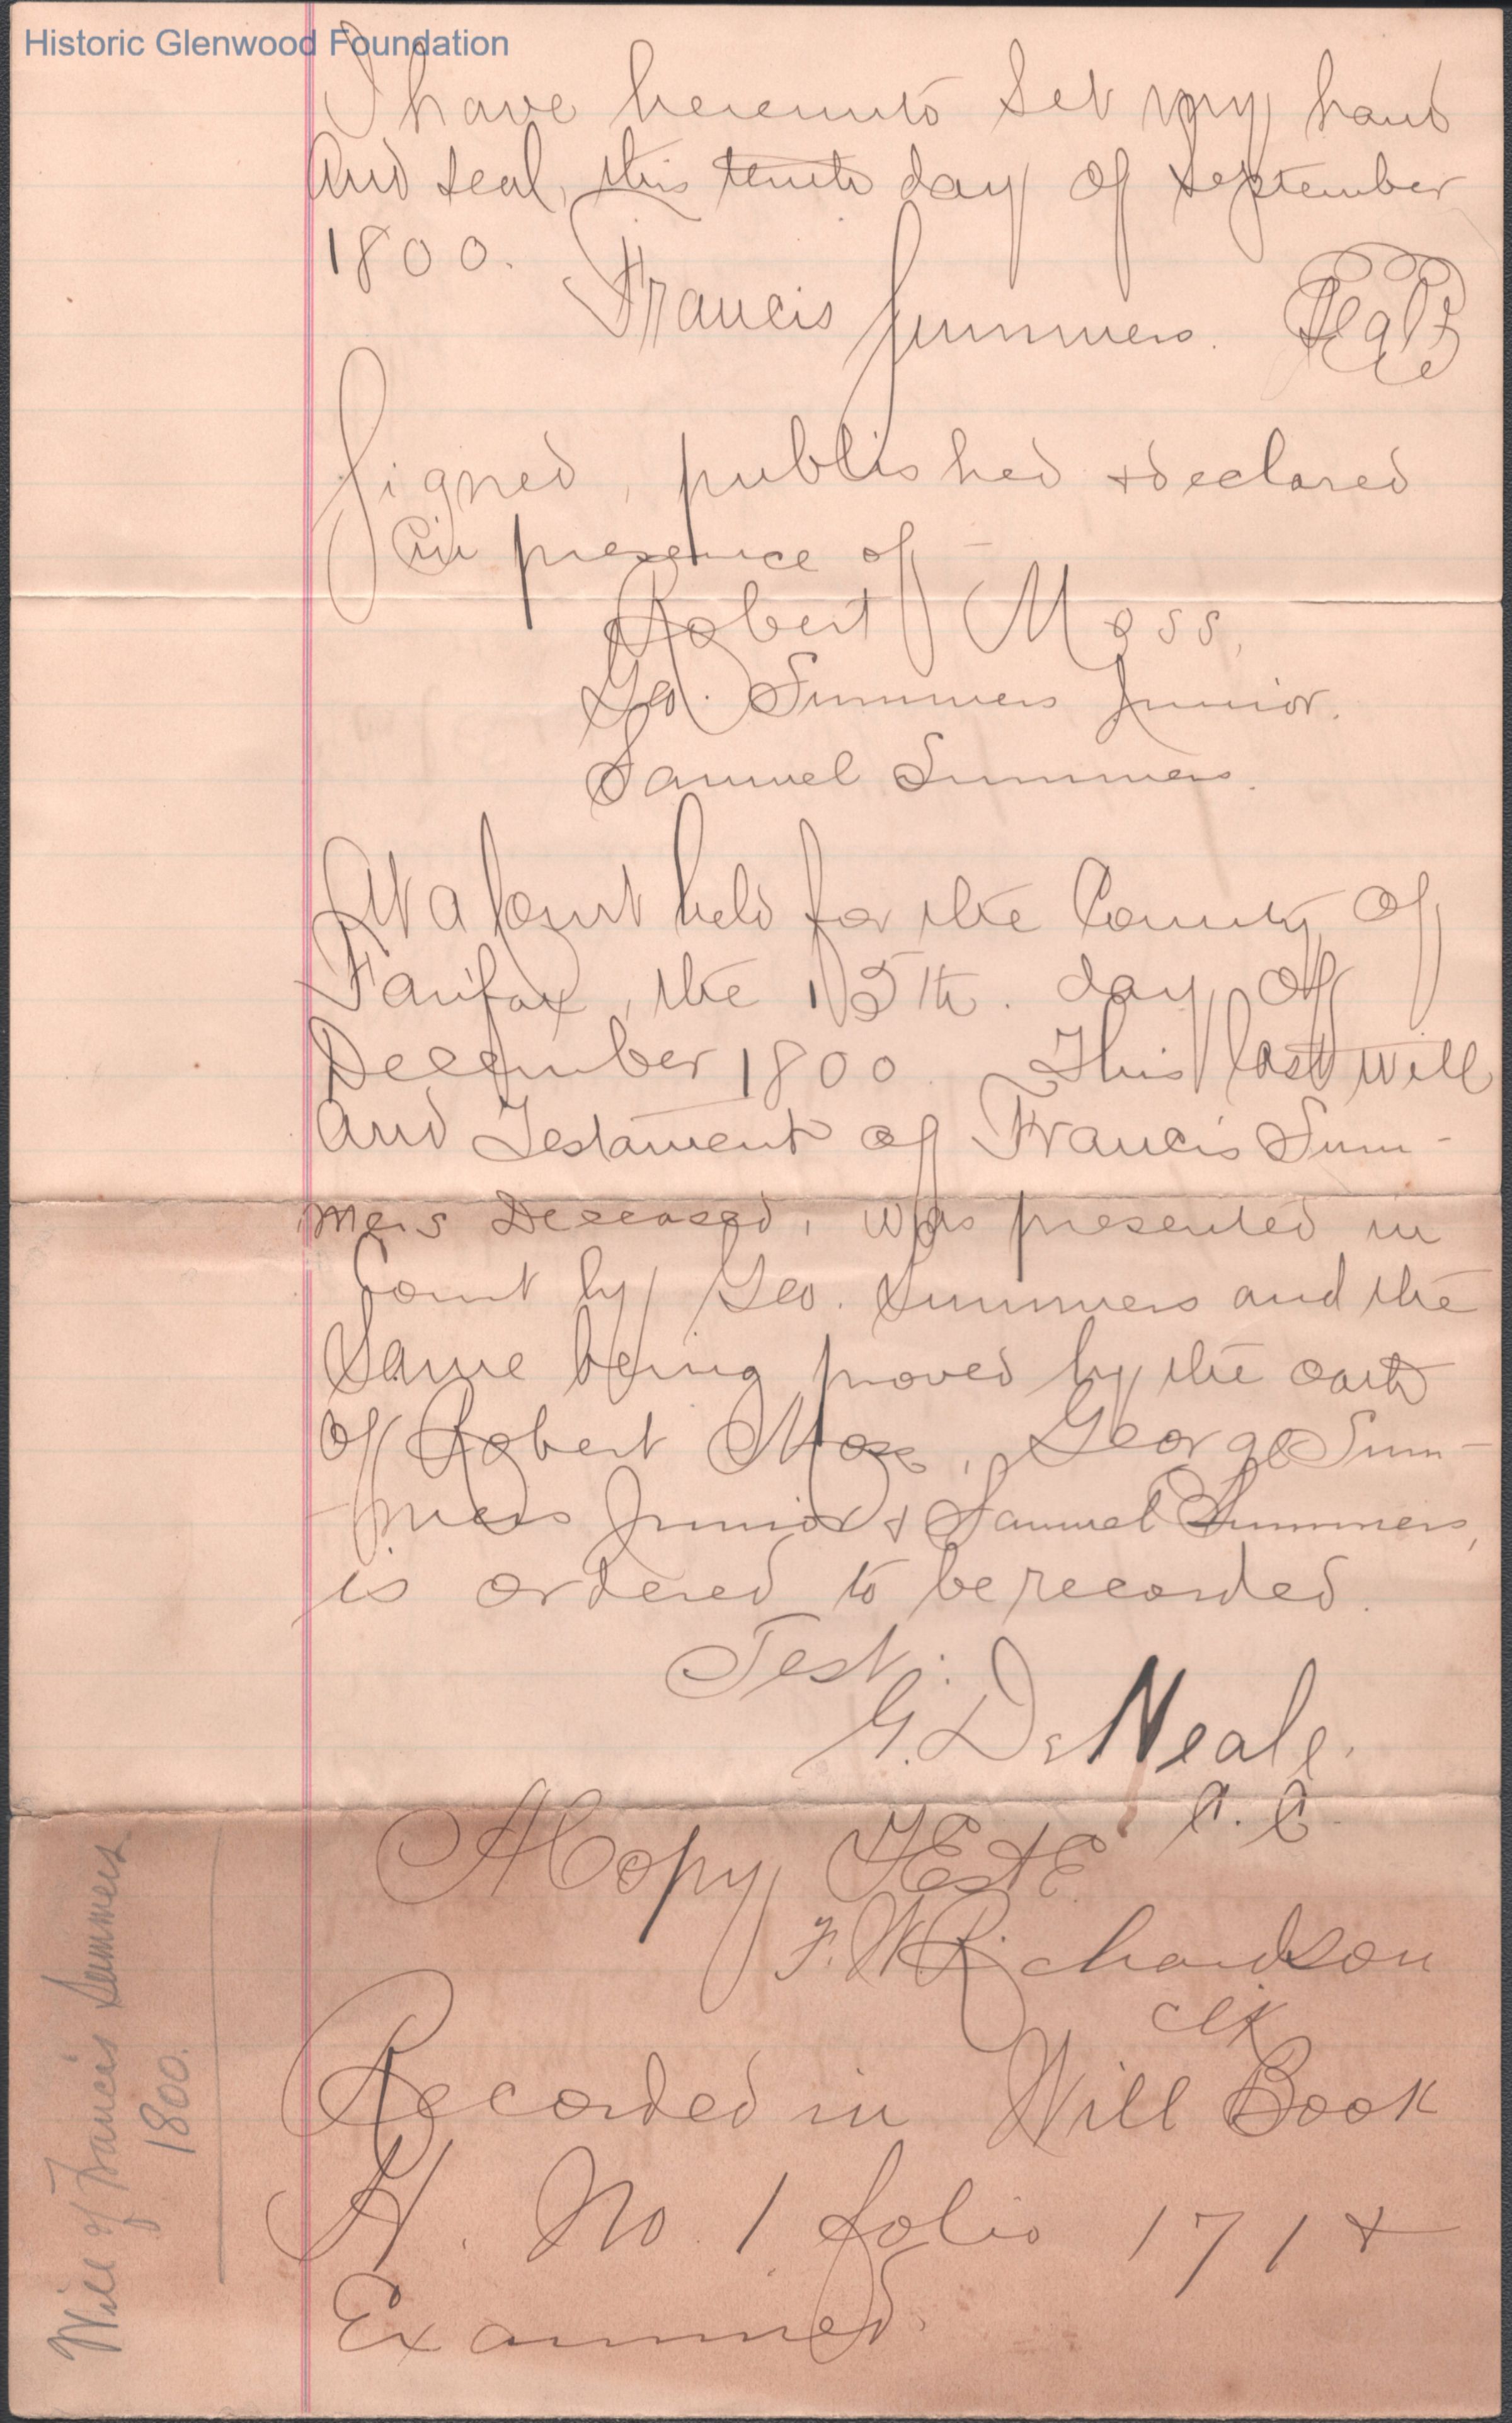 Historic Glenwood Foundation
I have hereunto set my hand
and seal, this tenth day of September
1800.
Francis Summers. Seal
Signed, published & declared
in presence of -
Robert Moss,
Geo. Summers Junior.
Samuel Summers.
At a Court held for the County of
Fairfax, the 15th. day of
December 1800. This last will
and Testament of Francis Sum-
mers Deceased, was presented in
Court by Geo. Summers and the
Same being proved by the oath
of Robert Moss, George Sum-
mers Junior & Samuel Summers,
is ordered to be recorded.
Test:
G. DeNeale.
C. C.
A Copy TESTE.
F. W. Richardson
Clk
Recorded in Will Book
H. No. 1 folio 171 &
Examined.
Will of Francis Summers
1800.